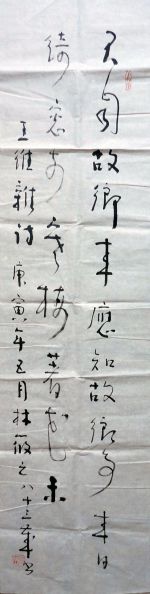 君自故鄉来應知故鄉事来日
綺窓前寒梅著花未
王維雜詩 庚寅年五月林筱之八十三歲書